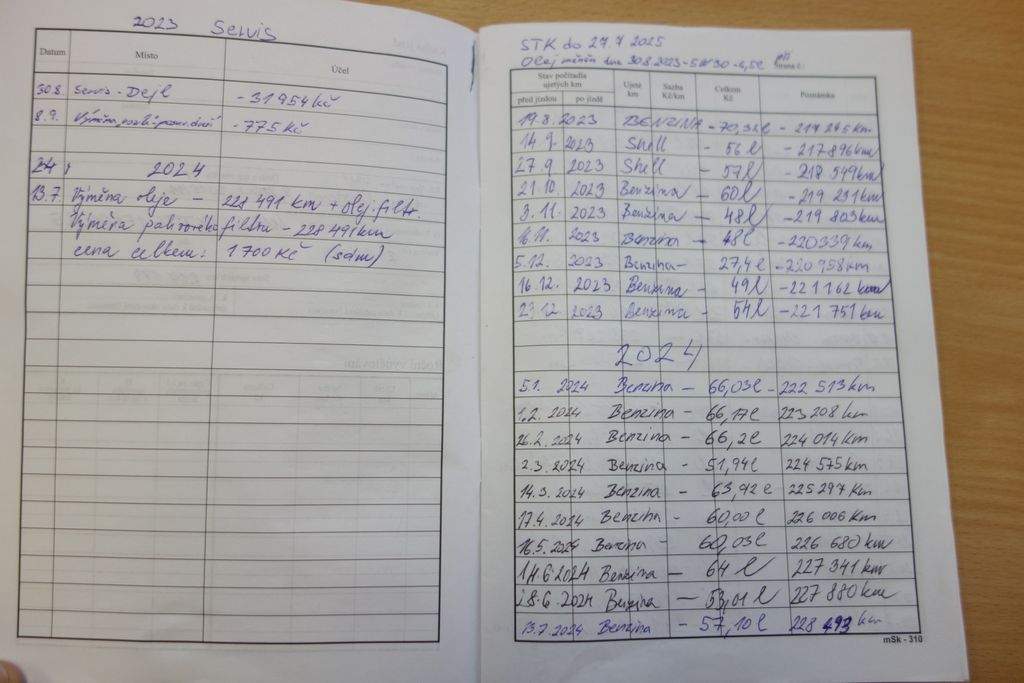 2023 Servis
Datum Místo Účel
30.8. Servis - Dejl - 31 954 Kč
8.9. Výměna - 775 Kč
24 2024
13.7 Výměna oleje - 228 491 km + olej. filtr.
Výměna palivového filtru - 228 491 km
cena celkem: 1 700 Kč (sám)
STK do 27.7 2025
Olej měněn dne 30.8.2023 - 5W30 - 6,5l při
Strana č.:
Stav počítadla ujetých km Ujeto km Sazba Kč/km Celkem Kč Poznámka
před jízdou po jízdě
19.8.2023 BENZINA - 70,32l - 217 245 km
14.9. 2023 Shell - 56 l - 217 896 km
27.9 2023 Shell - 57l - 218 549 km
21.10 2023 Benzina - 60l - 219 231 km
3.11. 2023 Benzina - 48l - 219 803 km
16.11. 2023 Benzina - 48l - 220 339 km
5.12. 2023 Benzina - 27,4 l - 220 958 km
16.12. 2023 Benzina - 49l - 221 162 km
23.12 2023 Benzina - 54l - 221 751 km
2024
5.1. 2024 Benzina - 66,03l - 222 513 km
1.2. 2024 Benzina - 66,17l 223 208 km
26.2. 2024 Benzina - 66,2l 224 014 km
2.3. 2024 Benzina - 51,94l 224 575 km
14.3. 2024 Benzina - 63,92 l 225 297 km
17.4. 2024 Benzina - 60,00 l 226 006 km
16.5. 2024 Benzina - 60,03l 226 680 km
14.6 2024 Benzina - 64 l 227 341 km
28.6. 2024 Benzina - 53,01 l 227 880 km
13.7 2024 Benzina - 57,10l 228 493 km
mSk - 310